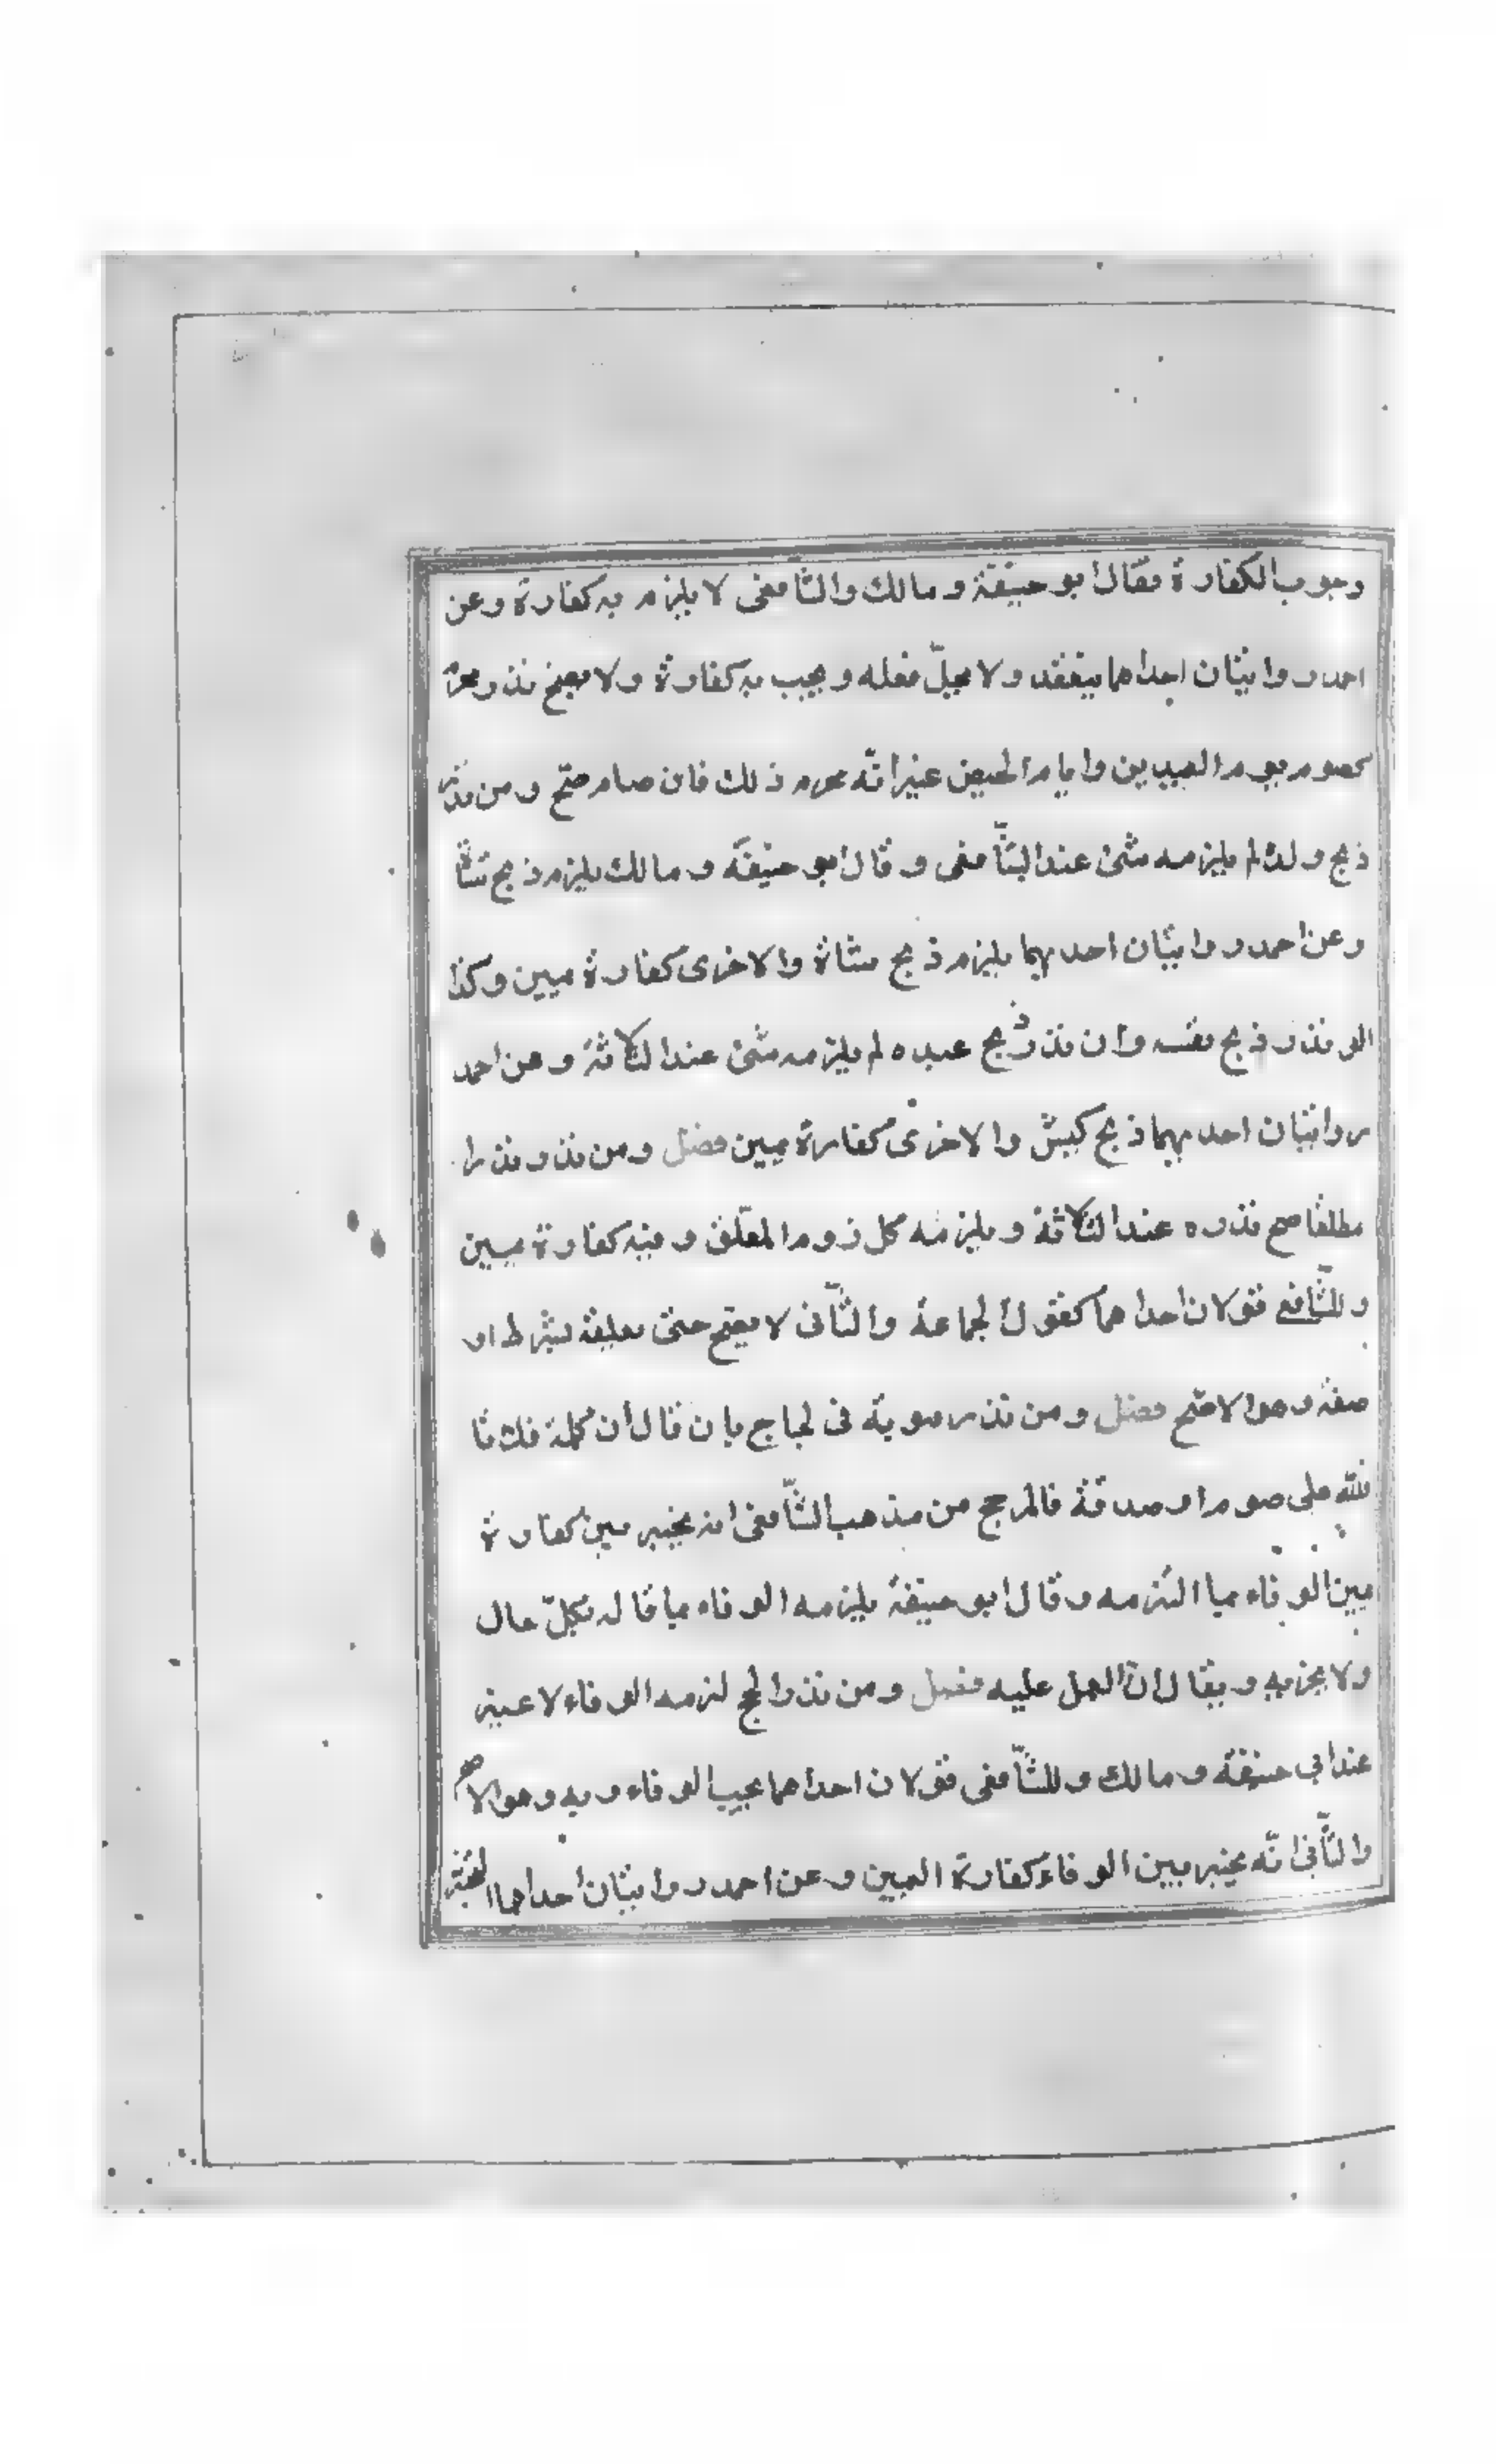 وجوب الكفارة فقال ابو حنيفة ومالك والشافعى لا يلزم به كفارة وعن
احمد روايتان احداهما ينعقد ولا يحلّ فعله ويجب به كفارة ولا يصح نذر محرم
كصوم يوم العيدين وايام الحيض غير انّه محرم ذلك فان صام صحّ ومن نذر
ذبح ولده لم يلزمه شئ عند الشّافعى وقال ابو حنيفة ومالك يلزم ذبح شاة
وعن احمد روايتان احديهما يلزم ذبح شاة والاخرى كفارة يمين وكذا
لو نذر ذبح نفسه وان نذر ذبح عبده لم يلزمه شئ عند الثلاثة وعن احمد
روايتان احديهما ذبح كبش والاخرى كفارة يمين فصل ومن نذر نذرا
مطلقا صح نذره عند الثلاثة ويلزمه كلزوم المعلّق وفيه كفارة يمين
وللشّافعى قولان احداهما كقول الجماعة والثّانى لا يصح حتى يعلقه بشرط او
صفة وهو الاصّح فصل ومن نذر قربة فى لجاج بان قال ان كلمة فلانا
فللّه على صوم او صدقة فالمرجح من مذهب الشّافعى انه يخير بين كفارة
يمين الوفاء بما التزمه وقال ابو حنيفة يلزمه الوفاء بما قاله بكلّ حال
ولا يجزيه ويقال انّ العمل عليه فصل ومن نذر الحج لزمه الوفاء لا غير
عند ابى حنيفة ومالك وللشّافعى قولان احداهما يجب الوفاء وبه وهو الاصح
والثّانى انّه يخير بين الوفاء كفارة اليمين وعن احمد روايتان احداهما